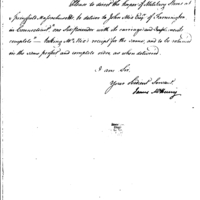 Please to direct the keeper of Military Stores at
Springfield Massachusetts to deliver to John Mix Esqr. of Farmington
in Connecticut, one Six pounder with its carriage and
complete taking Mr. Mix's receipt for the same, and to be returned
in the same perfect and complete order as when delivered.
I am Sir,
Your Obedient Servant,
James McHenry